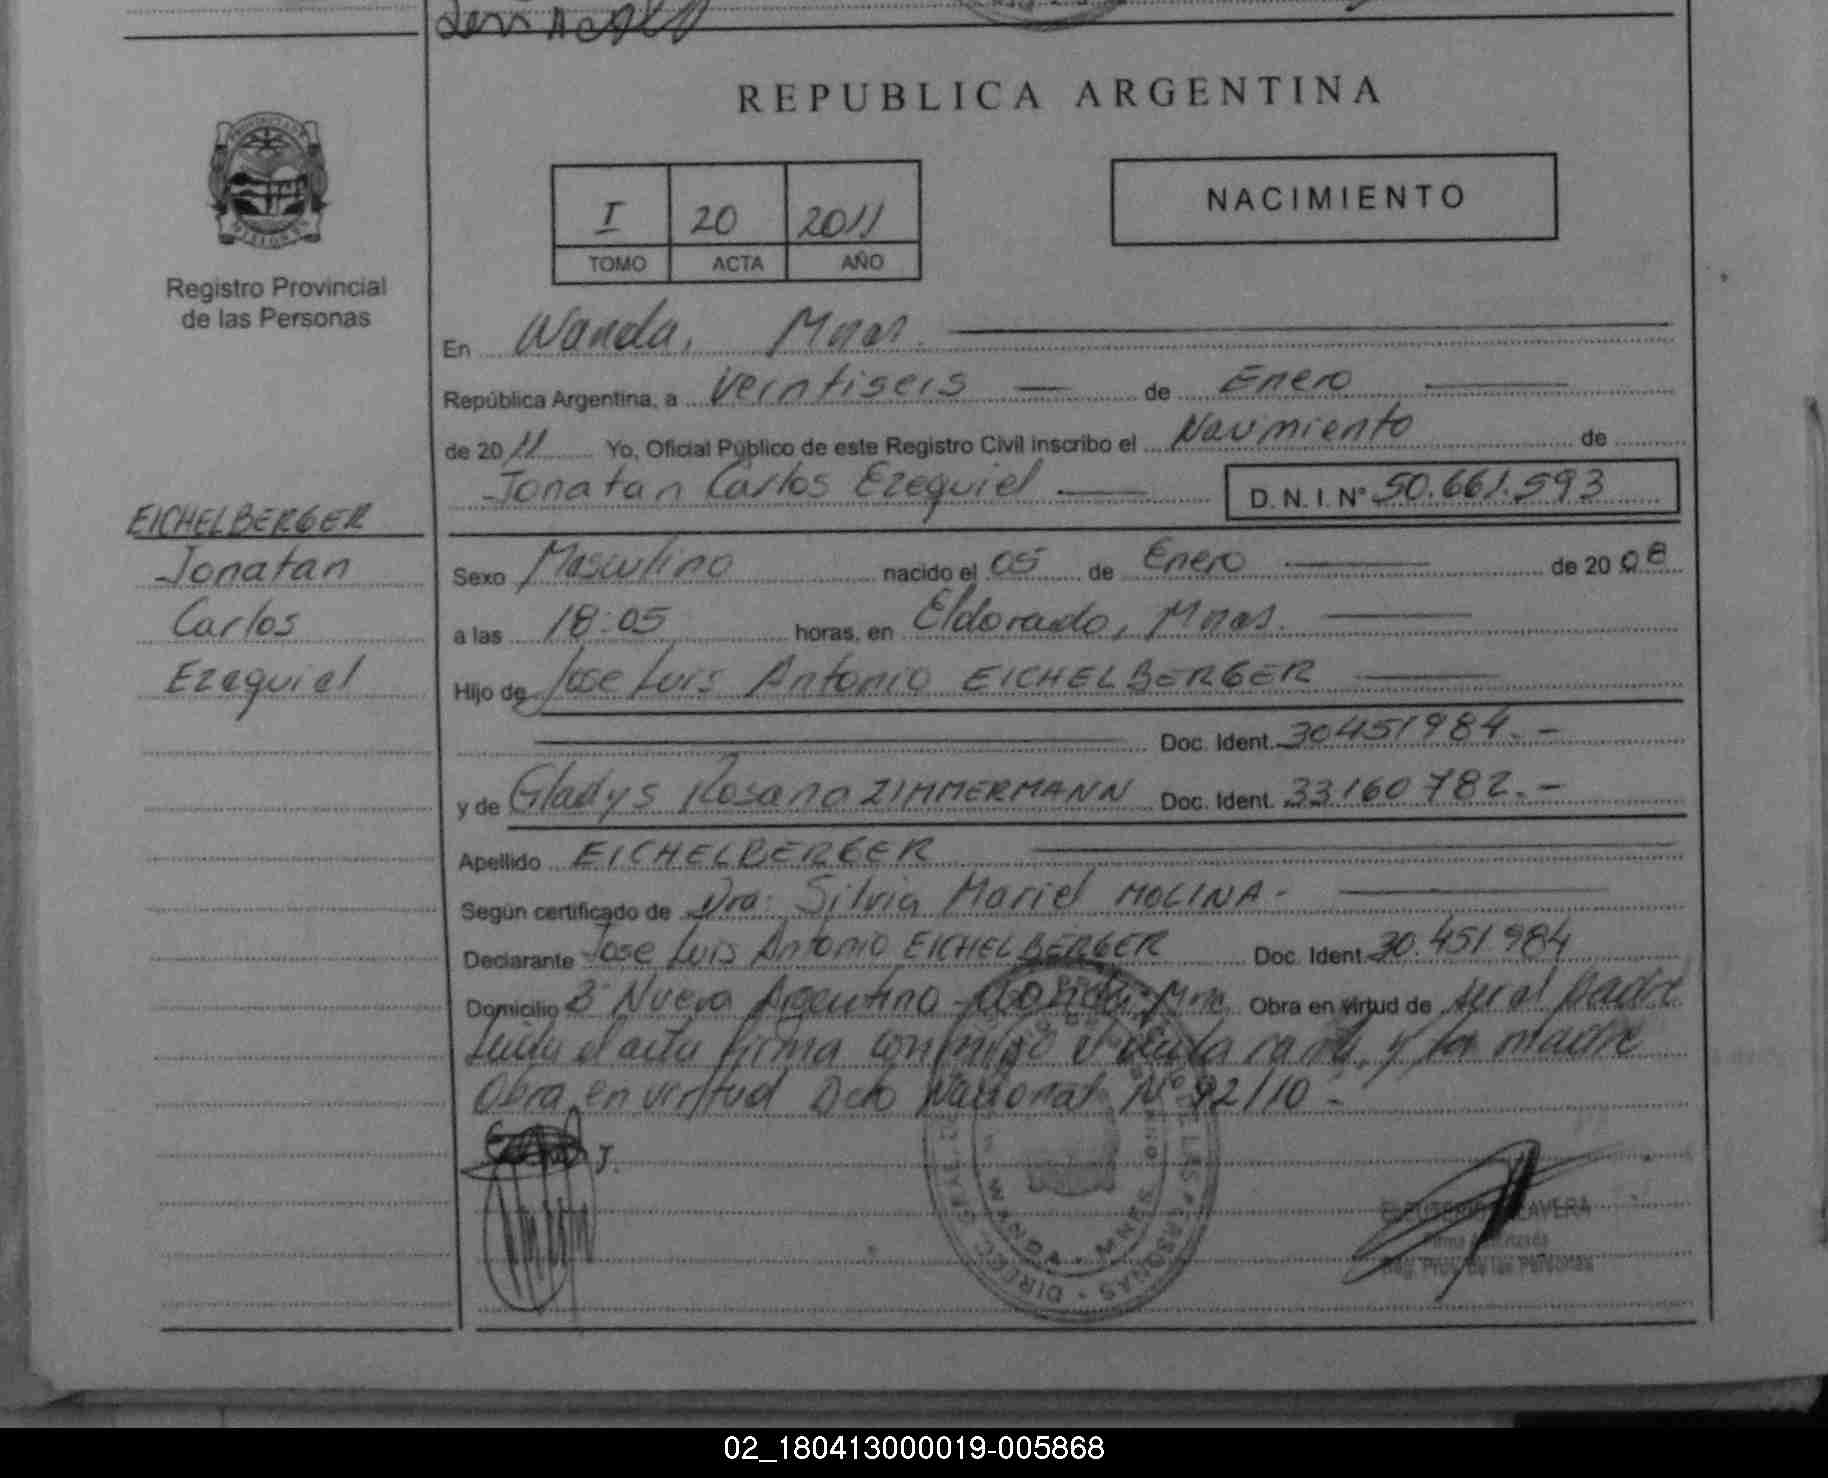 REPUBLICA ARGENTINA
PROVINCIA DE
MISIONES
Registro Provincial
de las Personas
I 20 2011
TOMO ACTA AÑO
NACIMIENTO
En Wanda, Mnes.
República Argentina, a veintiseis de Enero
de 2011 Yo, Oficial Público de este Registro Civil inscribo el Nacimiento de
Jonatan Carlos Ezequiel D.N.I. N° 50.661.593
EICHELBERGER
Jonatan
Carlos
Ezequiel
Sexo Masculino nacido el 05 de Enero de 2008
a las 18:05 horas, en Eldorado, Mnes.
Hijo de Jose Luis Antonio EICHELBERGER
Doc. Ident. 30451984.-
y de Gladys Rosana ZIMMERMANN Doc. Ident. 33160782.-
Apellido EICHELBERGER
Según certificado de Dra: Silvia Mariel MOLINA-
Declarante Jose Luis Antonio EICHELBERGER Doc. Ident. 30.451.984
Domicilio B° Nueva Argentina - Mnes. Obra en virtud de ser el padre
el acta firma conmigo el y la madre
Obra en virtud Dcto Nacional N° 92/10 -
WANDA - MNES
Firma Autorizada
Reg. Prov. de las Personas
02_180413000019-005868